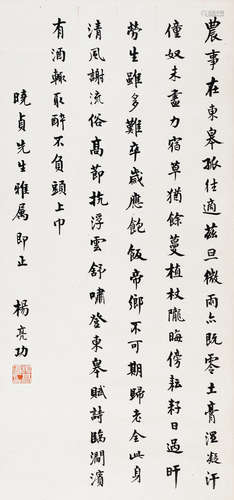 農事在東皋孤往適茲旦微雨亦既零土膏溼凝汗
僮奴未盡力宿草猶餘蔓植杖隴畮傍耘耔日過旰
勞生雖多難卒歲應飽飯帝鄉不可期歸老全此身
清風謝流俗高節抗浮雲舒嘯登東皋賦詩臨澗濱
有酒輒取醉不負頭上巾
曉貞先生雅屬即正
楊亮功